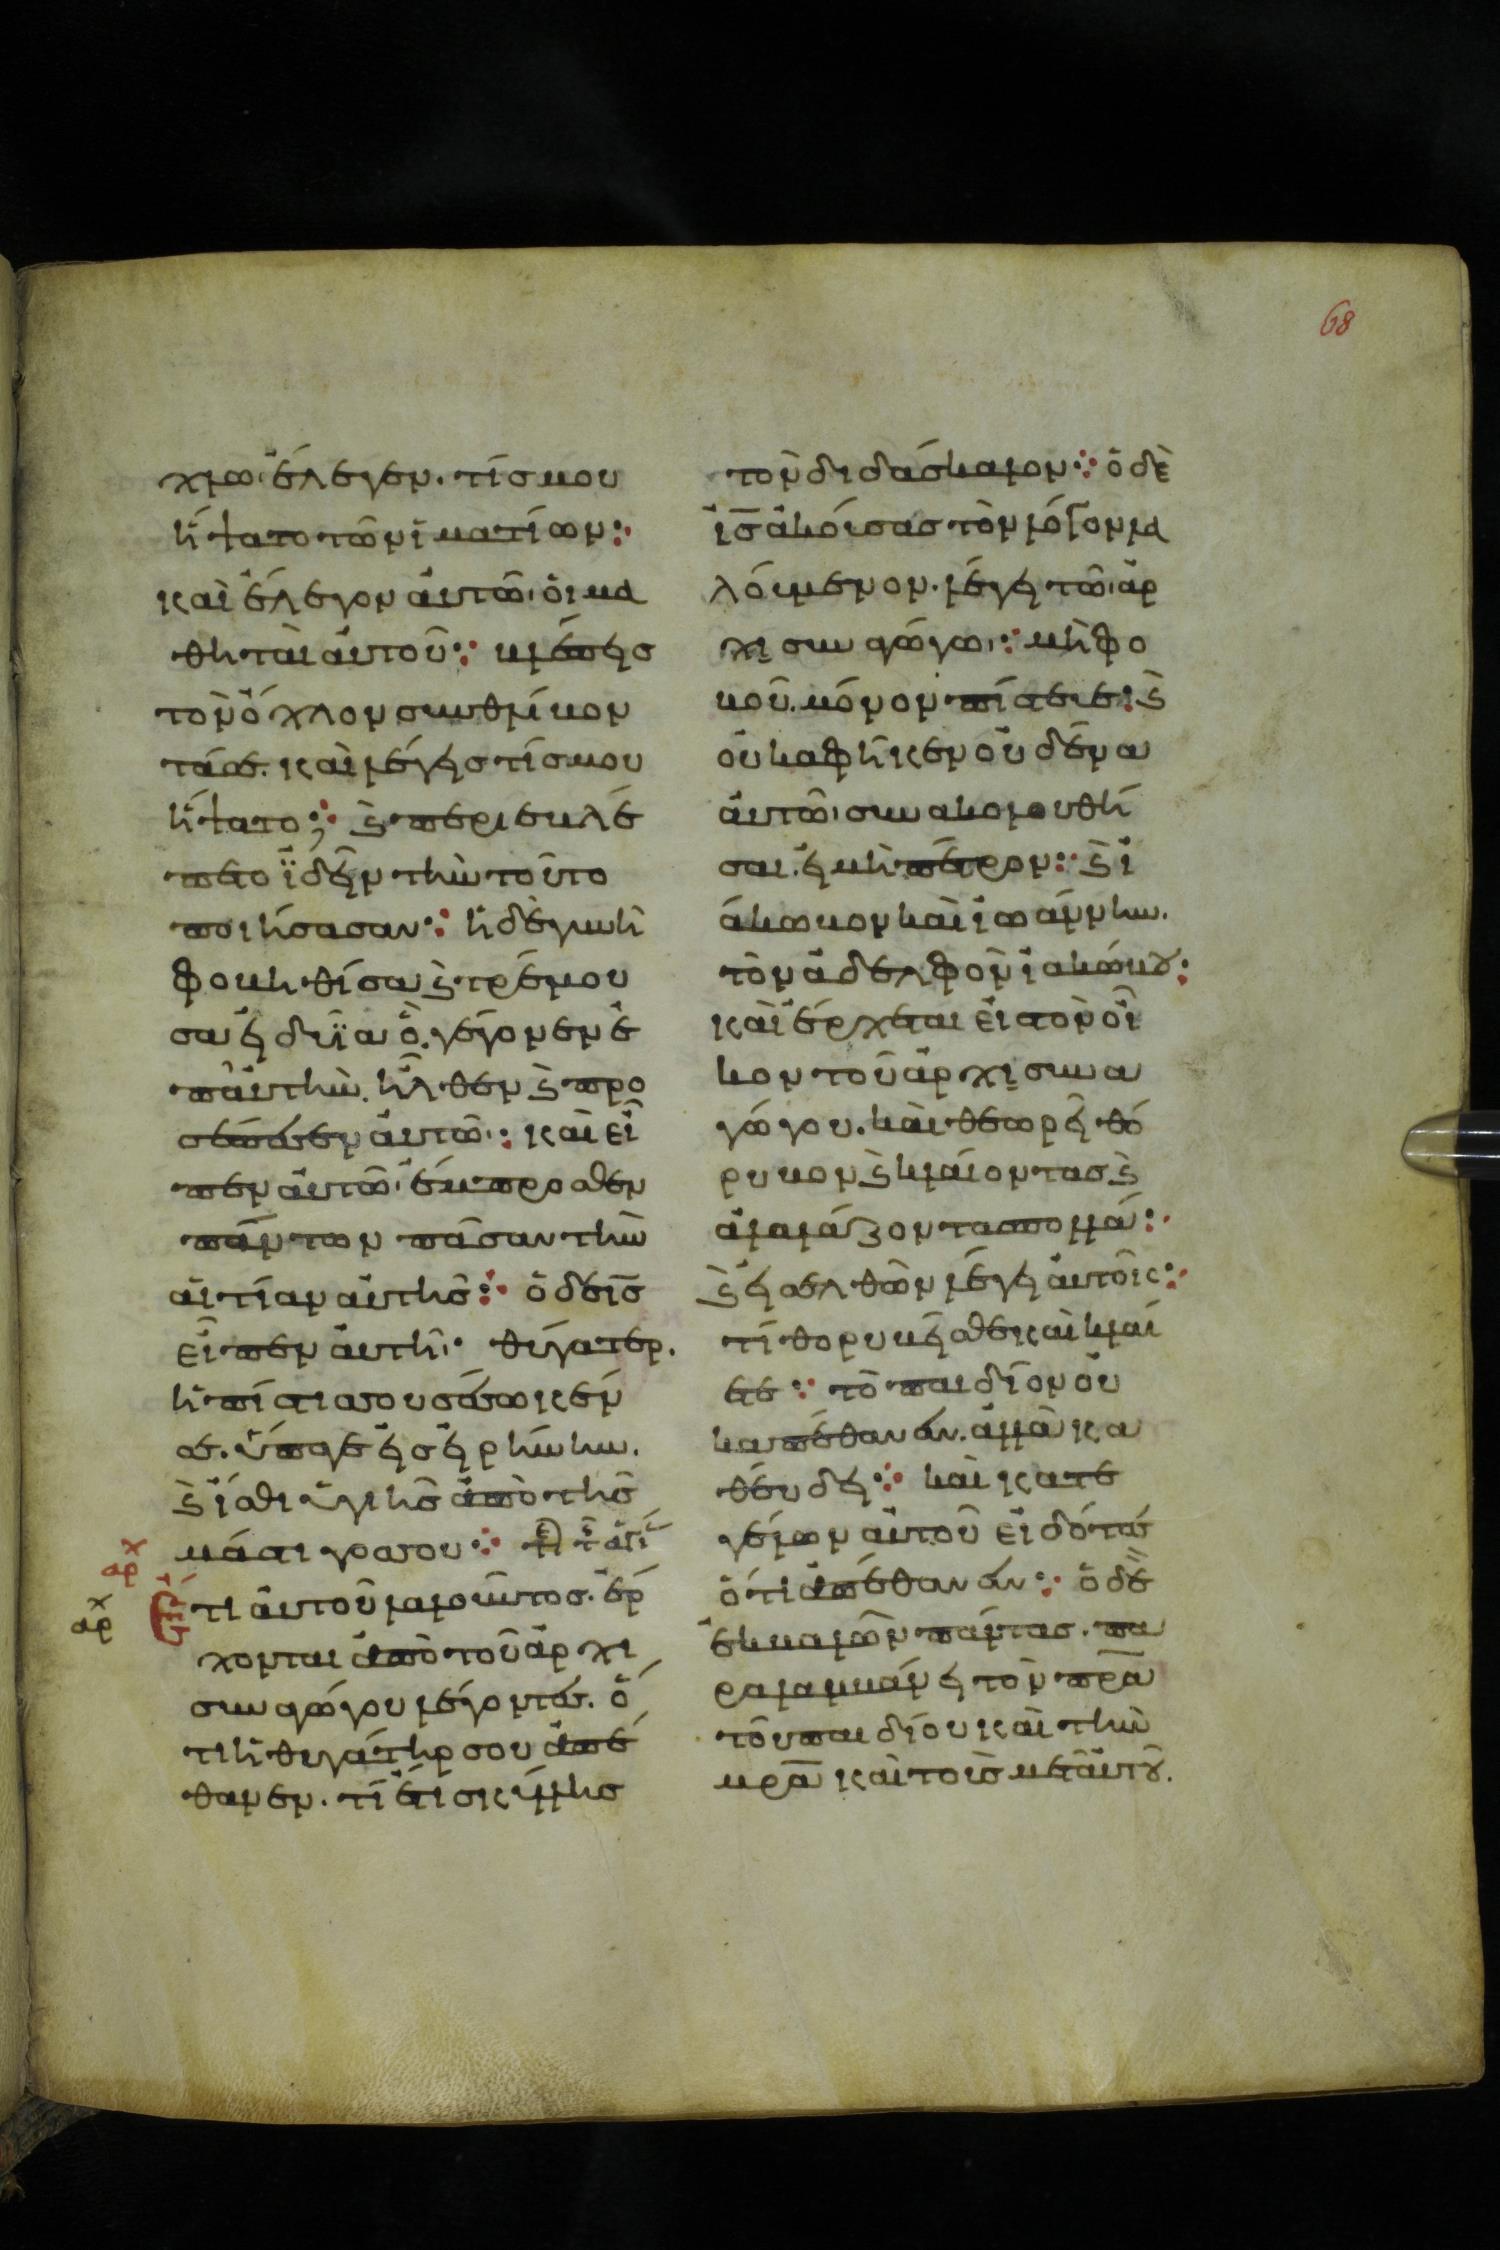 68
χλω· ἔλεγεν. τίς μου
ἥψατο τῶν ἱματίων:
καὶ ἔλεγον αὐτῶ· οἱ μα
θηταὶ αὐτοῦ: βλέπεις
τὸν ὄχλον συνθλίβον
τά σε. καὶ λέγεις τίς μου
ἥψατο; ϗ περιεβλέ
πετο ἰδεῖν τὴν τοῦτο
ποιήσασαν: ἡ δὲ γυνὴ
φοβηθίσα ϗ τρέμου
σα εἰδυῖα ὃ γέγονεν ἐ
π' αὐτήν. ἦλθεν ϗ προ
σέπεσεν αὐτῶ: καὶ εἶ
πεν αὐτῶ· ἔμπροσθεν
πάντων πᾶσαν τὴν
αἰτίαν αὐτῆς: ὁ δὲ ις
εἶπεν αὐτῆ· θύγατερ.
ἡ πίστις σου σέσωκέν
σε. ὕπαγε εἰς εἰρήνην.
ϗ ἴσθι ὑγιὴς ἀπὸ τῆς
μάστιγος σου:
αρχ
Ἔτι αὐτοῦ λαλοῦντος. ἔρ
αρχ
χονται ἀπὸ τοῦ ἀρχι
συναγώγου λέγοντες. ὅ
τι ἡ θυγάτηρ σου ἀπέ
θανεν. τί ἔτι σκύλλης
τὸν διδάσκαλον: ὁ δὲ
ις ἀκούσας τὸν λόγον λα
λούμενον. λέγει τῶ ἀρ
χισυναγώγω: μὴ φο
βοῦ. μόνον πίστευε: ϗ
οὐκ ἀφῆκεν οὐδένα
αὐτῶ συνακολουθῆ
σαι. εἰ μὴ πέτρον: ϗ ἰ
άκωβον καὶ ἰωάννην.
τὸν ἀδελφὸν ἰακώβου:
καὶ ἔρχεται εἰς τὸν οἶ
κον τοῦ ἀρχισυνα
γώγου. καὶ θεωρεῖ θό
ρυβον ϗ κλαίοντας ϗ
ἀλαλάζοντας πολλά:
ϗ εἰσελθὼν λέγει αὐτοῖς:
τί θορυβεῖσθε καὶ κλαί
ετε: τὸ παιδίον οὐ
κ ἀπέθανεν. ἀλλὰ κα
θεύδει: καὶ κατε
γέλων αὐτοῦ εἰδότες
ὅτι ἀπέθανεν: ὁ δὲ
ἐκβαλὼν πάντας. πα
ραλαμβάνει τὸν πρα
τοῦ παιδίου καὶ τὴν
μρα καὶ τοὺς μετ' αὐτοῦ.